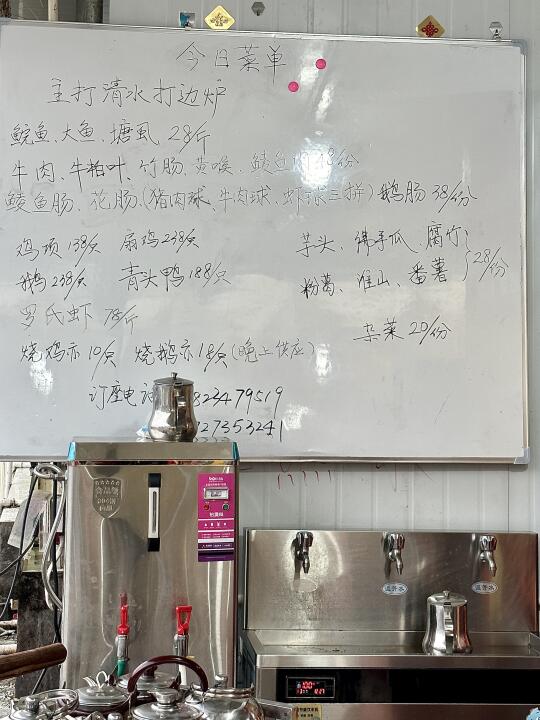 今日菜单
主打清水打边炉
鲩鱼、大鱼、塘虱 28/斤
牛肉、牛柏叶、竹肠、黄喉、鲮鱼肉 48/份
鲮鱼肠、花肠、(猪肉球、牛肉球、虾球三拼) 鹅肠 38/份
鸡项 138/只 扇鸡 238/只
鹅 238/只 青头鸭 188/只
芋头、佛手瓜、腐竹
粉葛、淮山、番薯 28/份
罗氏虾 78/斤
杂菜 20/份
烧鸡亦 10/只 烧鹅亦 18/只 (晚上供应)
订座电 823479519
27353241
温开水
温开水
100